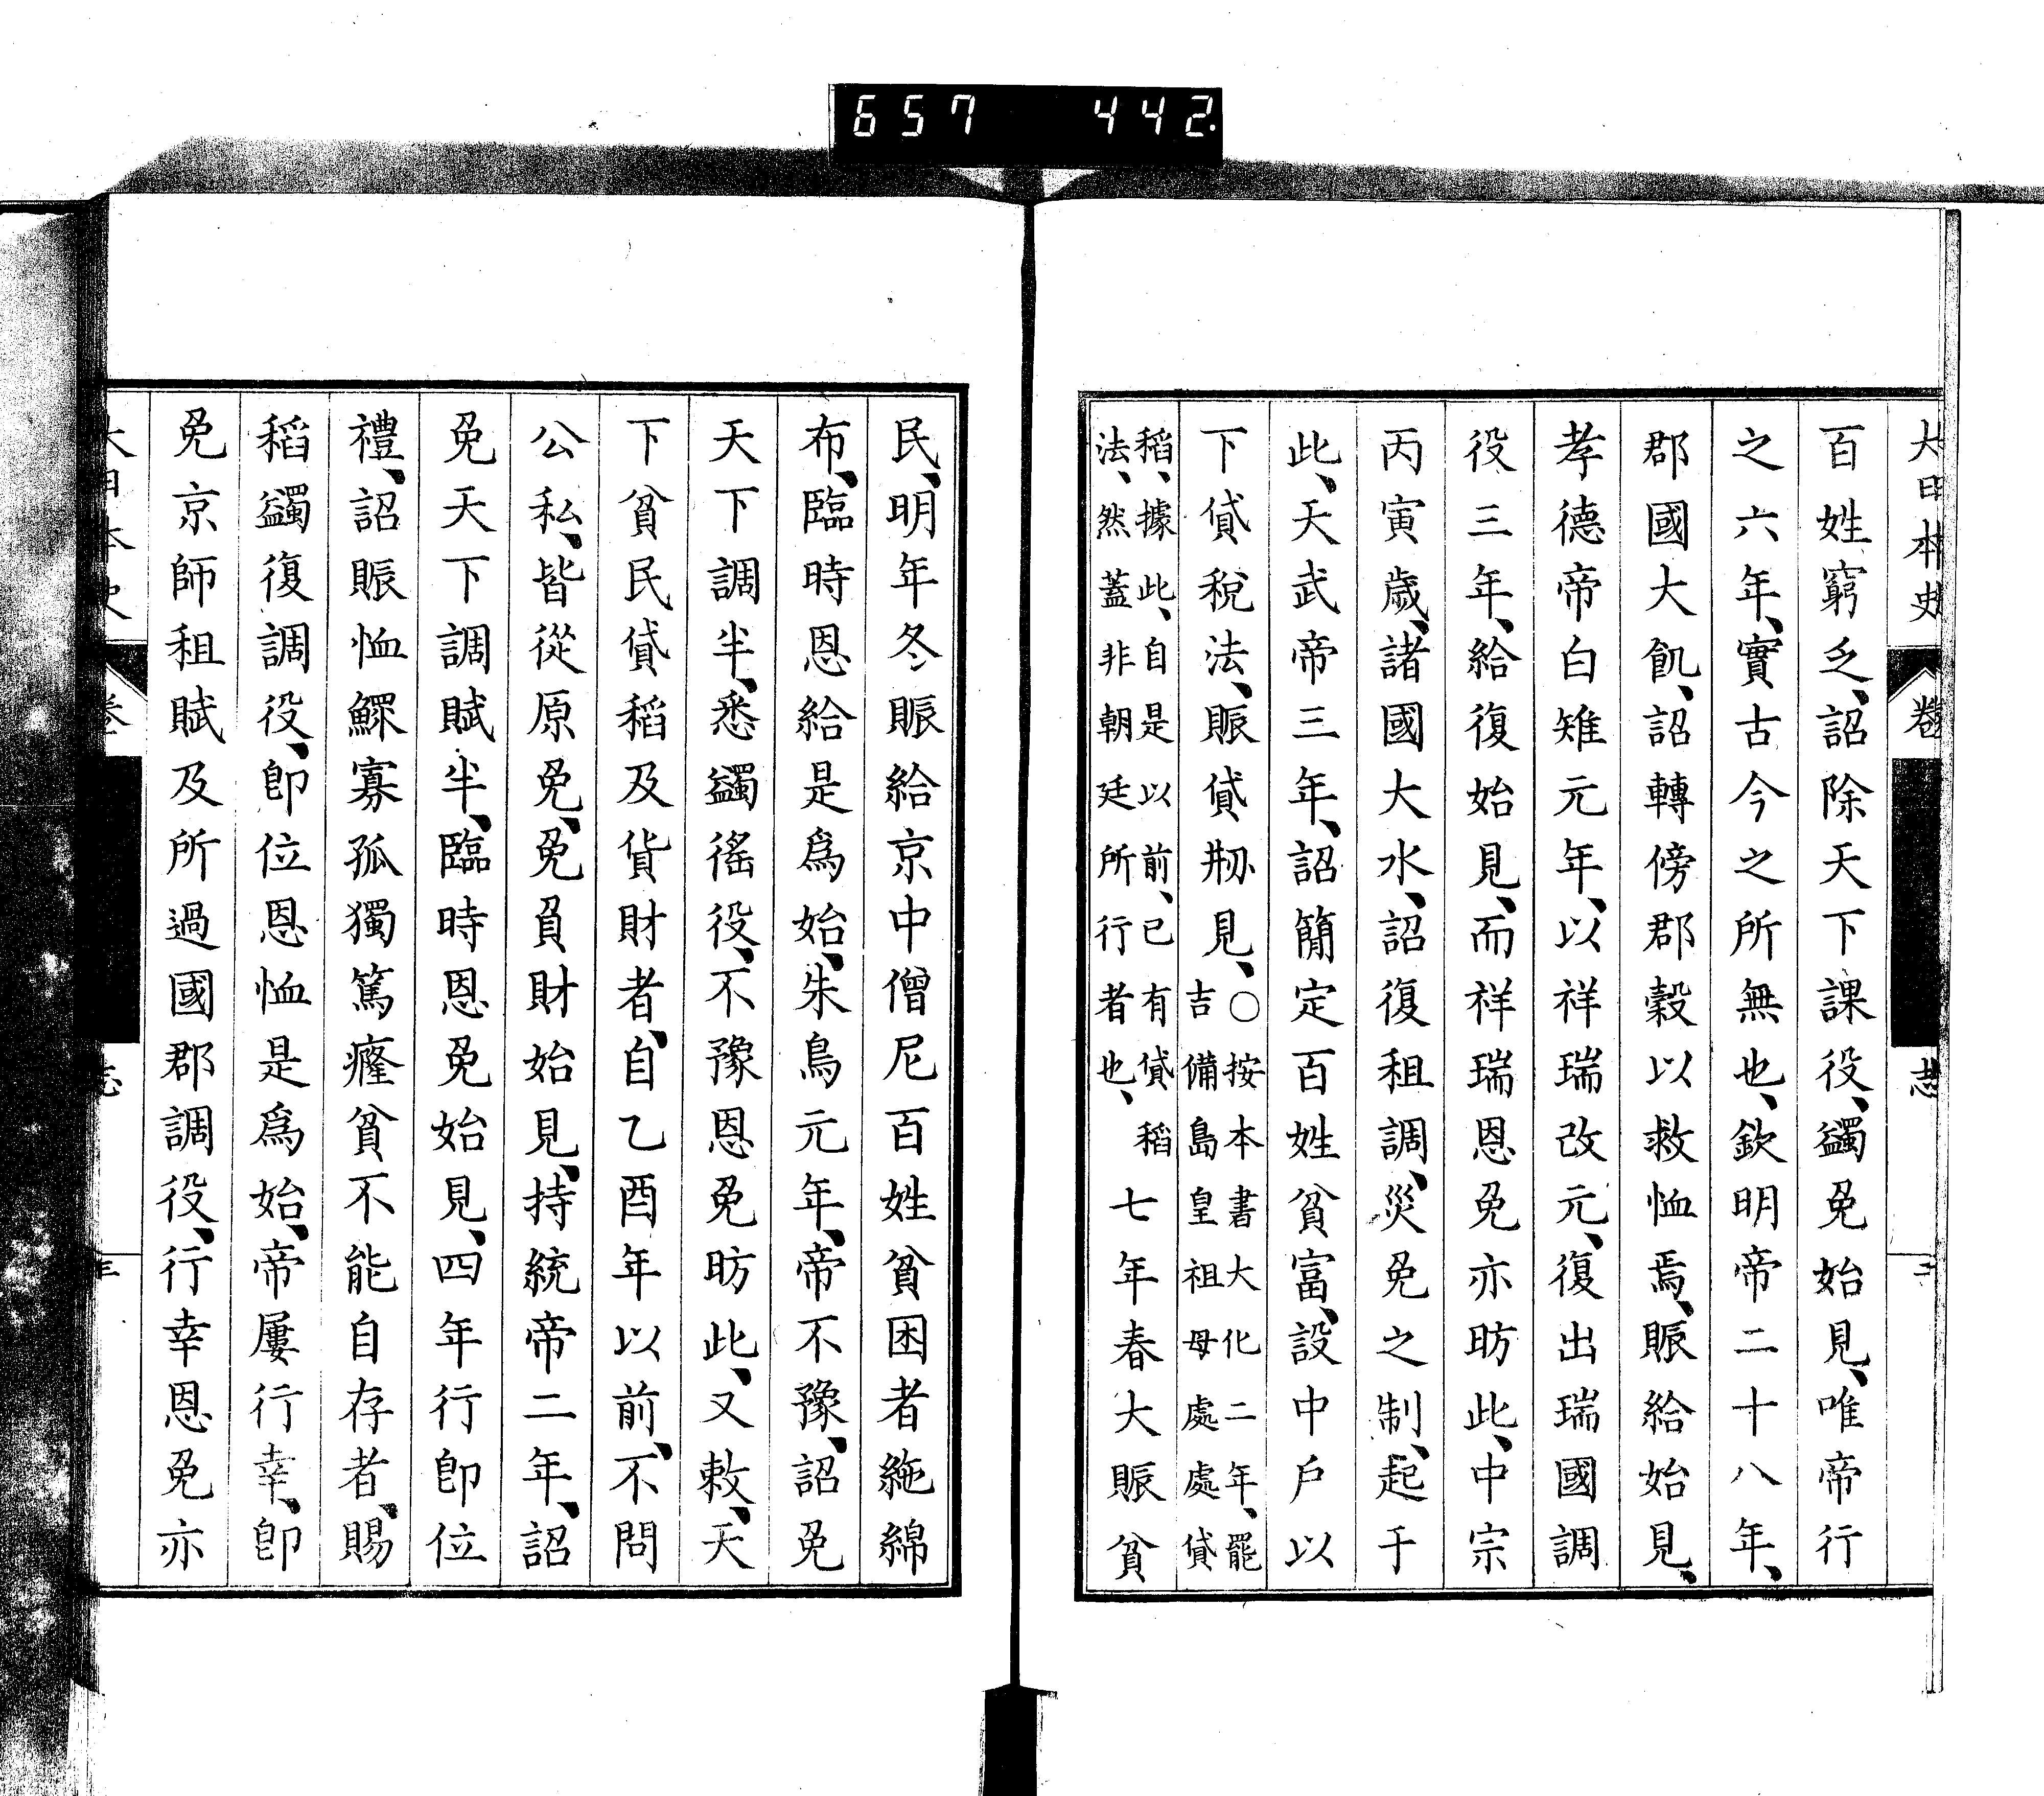 657 442
大日本史 卷 志 二
百姓窮乏、詔除天下課役、蠲免始見、唯帝行
之六年、實古今之所無也、欽明帝二十八年、
郡國大飢、詔轉傍郡穀以救恤焉、賑給始見、
孝德帝白雉元年、以祥瑞改元、復出瑞國調
役三年、給復始見、而祥瑞恩免亦昉此、中宗
丙寅歲、諸國大水、詔復租調、災免之制、起于
此、天武帝三年、詔簡定百姓貧富、設中戶以
下貸稅法、賑貸刱見、○按本書大化二年、罷
吉備島皇祖母處處貸
稻、據此、自是以前、已有貸稻
法、然蓋非朝廷所行者也、
七年春大賑貧
民、明年冬賑給京中僧尼百姓貧困者絁綿
布、臨時恩給是爲始、朱鳥元年、帝不豫、詔免
天下調半、悉蠲徭役、不豫恩免昉此、又敕、天
下貧民貸稻及貨財者、自乙酉年以前、不問
公私、皆從原免、免負財始見、持統帝二年、詔
免天下調賦半、臨時恩免始見、四年行卽位
禮、詔賑恤鰥寡孤獨篤癃貧不能自存者、賜
稻蠲復調役、卽位恩恤是爲始、帝屢行幸、卽
免京師租賦及所過國郡調役、行幸恩免亦
大日本史 卷 志 三